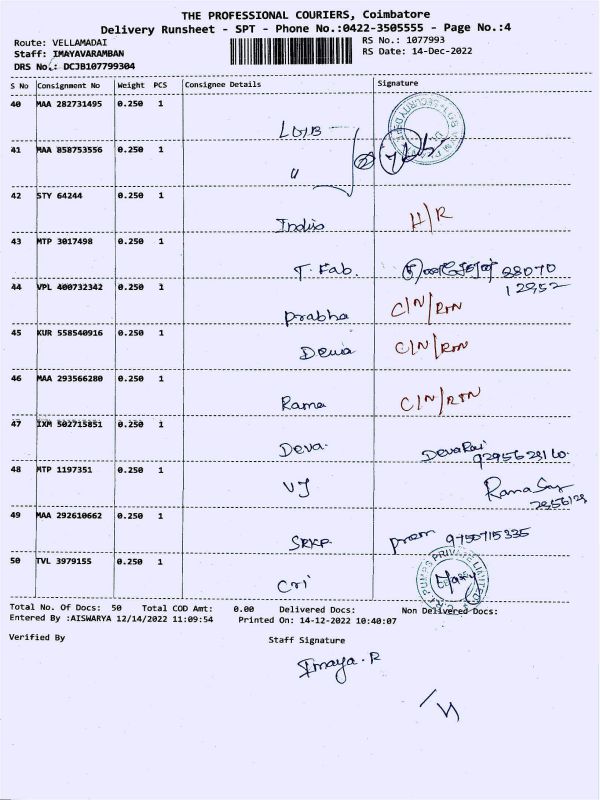 THE PROFESSIONAL COURIERS, Coimbatore
Delivery Runsheet - SPT - Phone No.:0422-3505555 - Page No.:4
Route: VELLAMADAI RS No.: 1077993
Staff: IMAYAVARAMBAN RS Date: 14-Dec-2022
DRS No.: DCJB107799304
S No Consignment No Weight PCS Consignee Details Signature
40 MAA 282731495 0.250 1
41 MAA 858753556 0.250 1 "
42 STY 64244 0.250 1 H/R
43 MTP 3017498 0.250 1 T. Fab. 88070
44 VPL 400732342 0.250 1 Prabha C/N/RTN
45 KUR 558540916 0.250 1 C/N/RTN
46 MAA 293566280 0.250 1 Rama C/N/RTN
47 IXM 502715851 0.250 1 Deva.
48 MTP 1197351 0.250 1 VJ
49 MAA 292610662 0.250 1 SRKP Prem 9750715335
50 TVL 3979155 0.250 1 Cri
Total No. Of Docs: 50 Total COD Amt: 0.00 Delivered Docs: Non Delivered Docs:
Entered By :AISWARYA 12/14/2022 11:09:54 Printed On: 14-12-2022 10:40:07
Verified By Staff Signature
Imaya.R